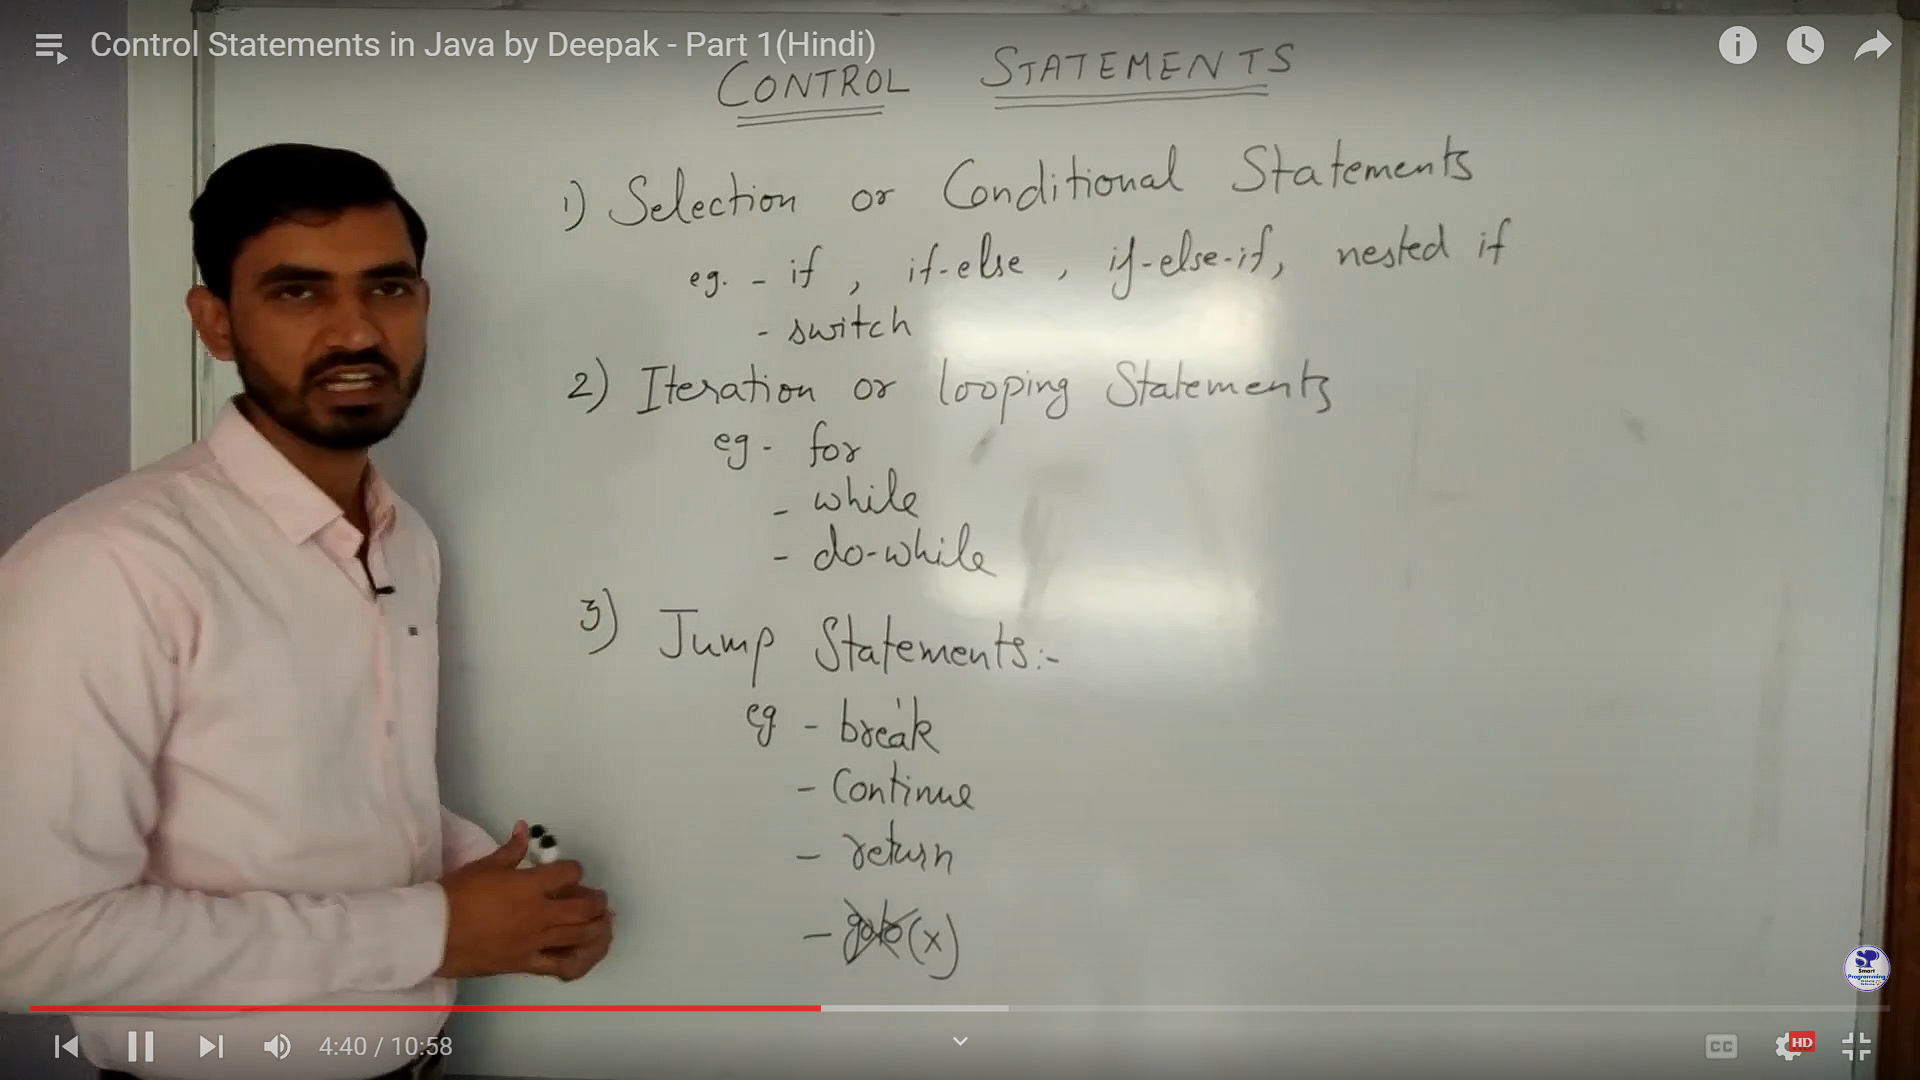 Control Statements in Java by Deepak - Part 1(Hindi)
CONTROL STATEMENTS
1) Selection or Conditional Statements
eg. - if , if-else , if-else-if, nested if
- switch
2) Iteration or looping Statements
eg - for
- while
- do-while
3) Jump Statements:-
eg - break
- Continue
- return
- goto (x)
SP
Smart
Programming
4:40 / 10:58
CC
HD